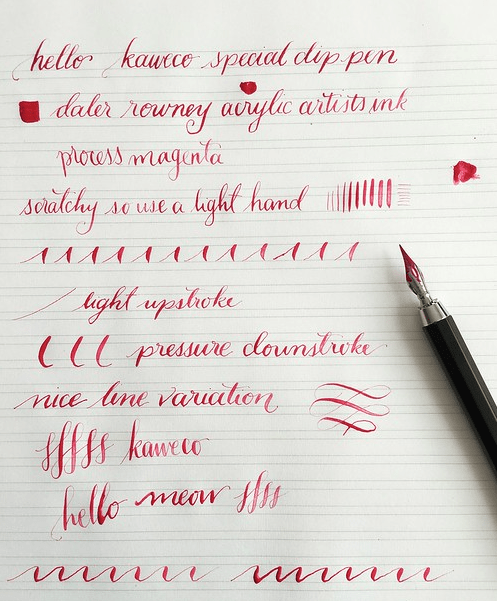 hello kaweco special dip pen
daler rowney acrylic artists ink
process magenta
scratchy so use a light hand
light upstroke
pressure downstroke
nice line variation
kaweco
hello meow